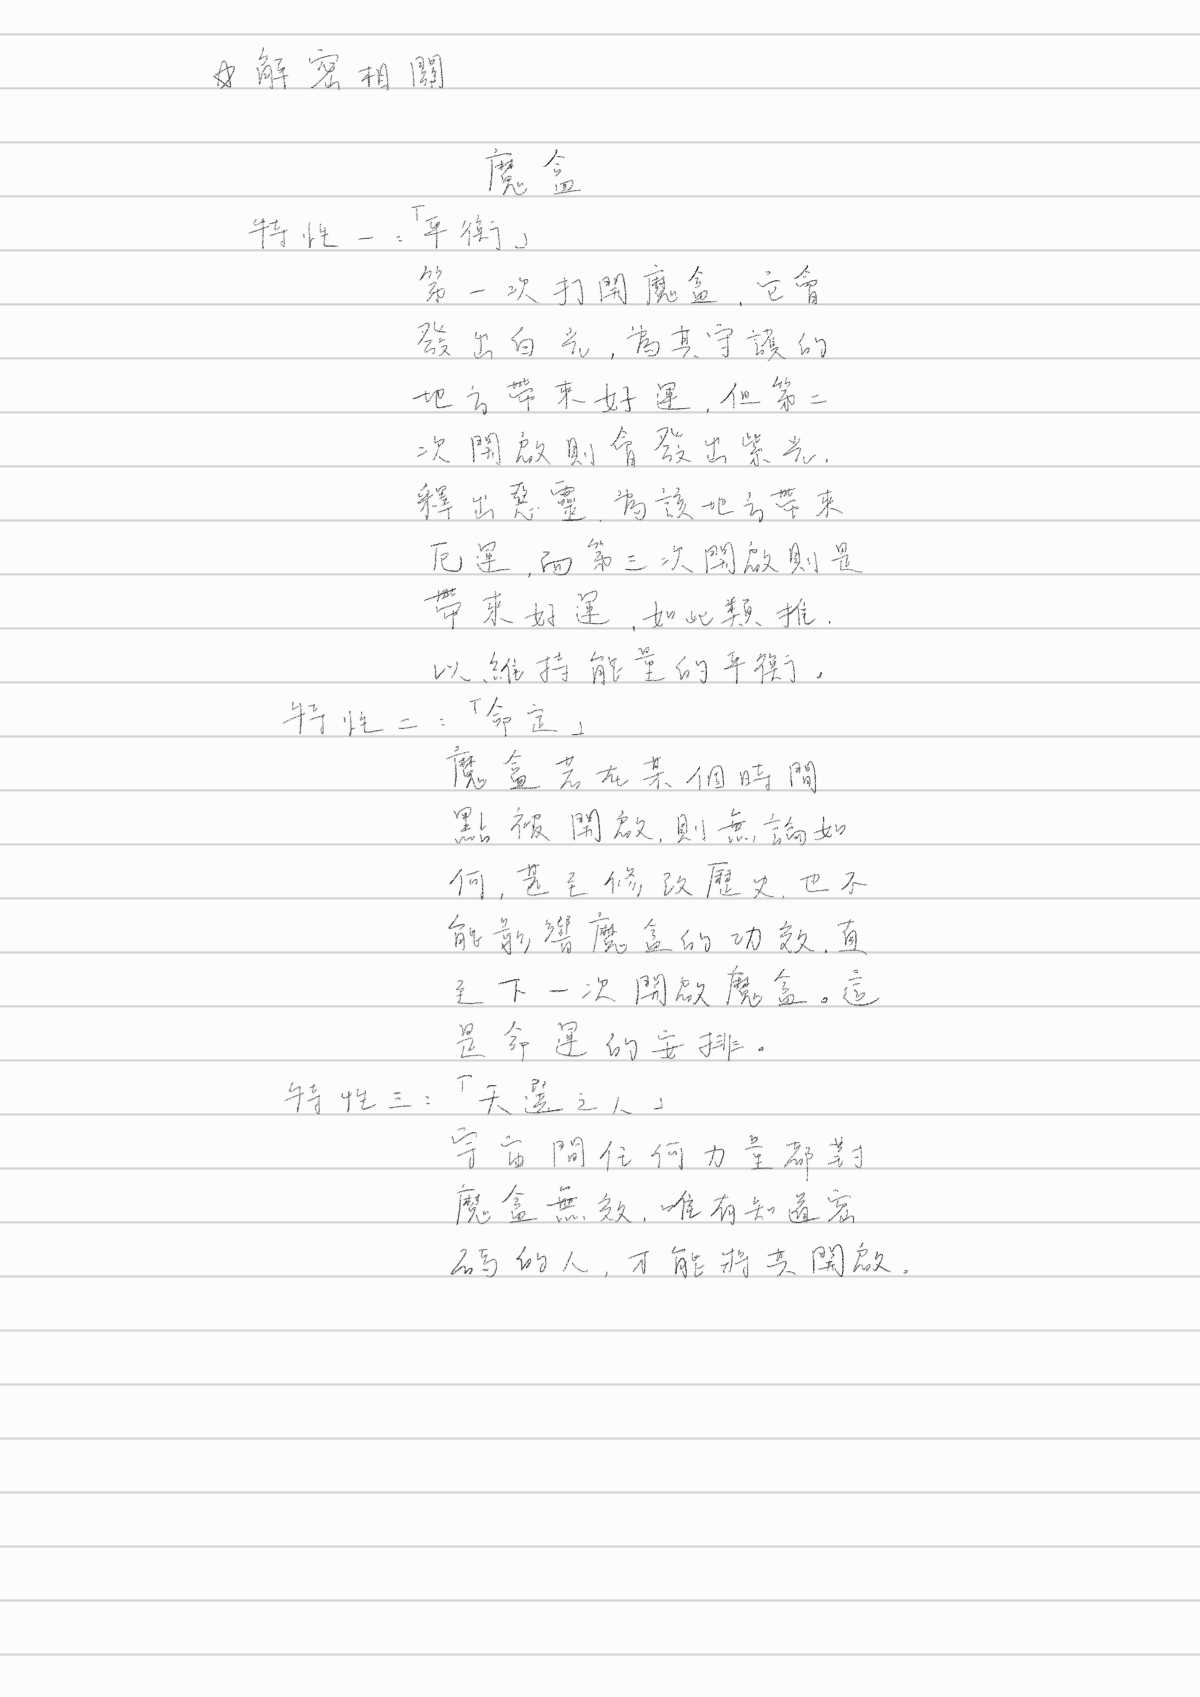 ☆解密相關
魔盒
特性一：「平衡」
第一次打開魔盒，它會
發出白光，為其守護的
地方帶來好運，但第二
次開啟則會發出紫光，
釋出惡靈，為該地方帶來
厄運，而第三次開啟則是
帶來好運，如此類推，
以維持能量的平衡。
特性二：「命定」
魔盒若在某個時間
點被開啟，則無論如
何，甚至修改歷史，也不
能影響魔盒的功效，直
至下一次開啟魔盒。這
是命運的安排。
特性三：「天選之人」
宇宙間任何力量都對
魔盒無效，唯有知道密
碼的人，才能將其開啟。